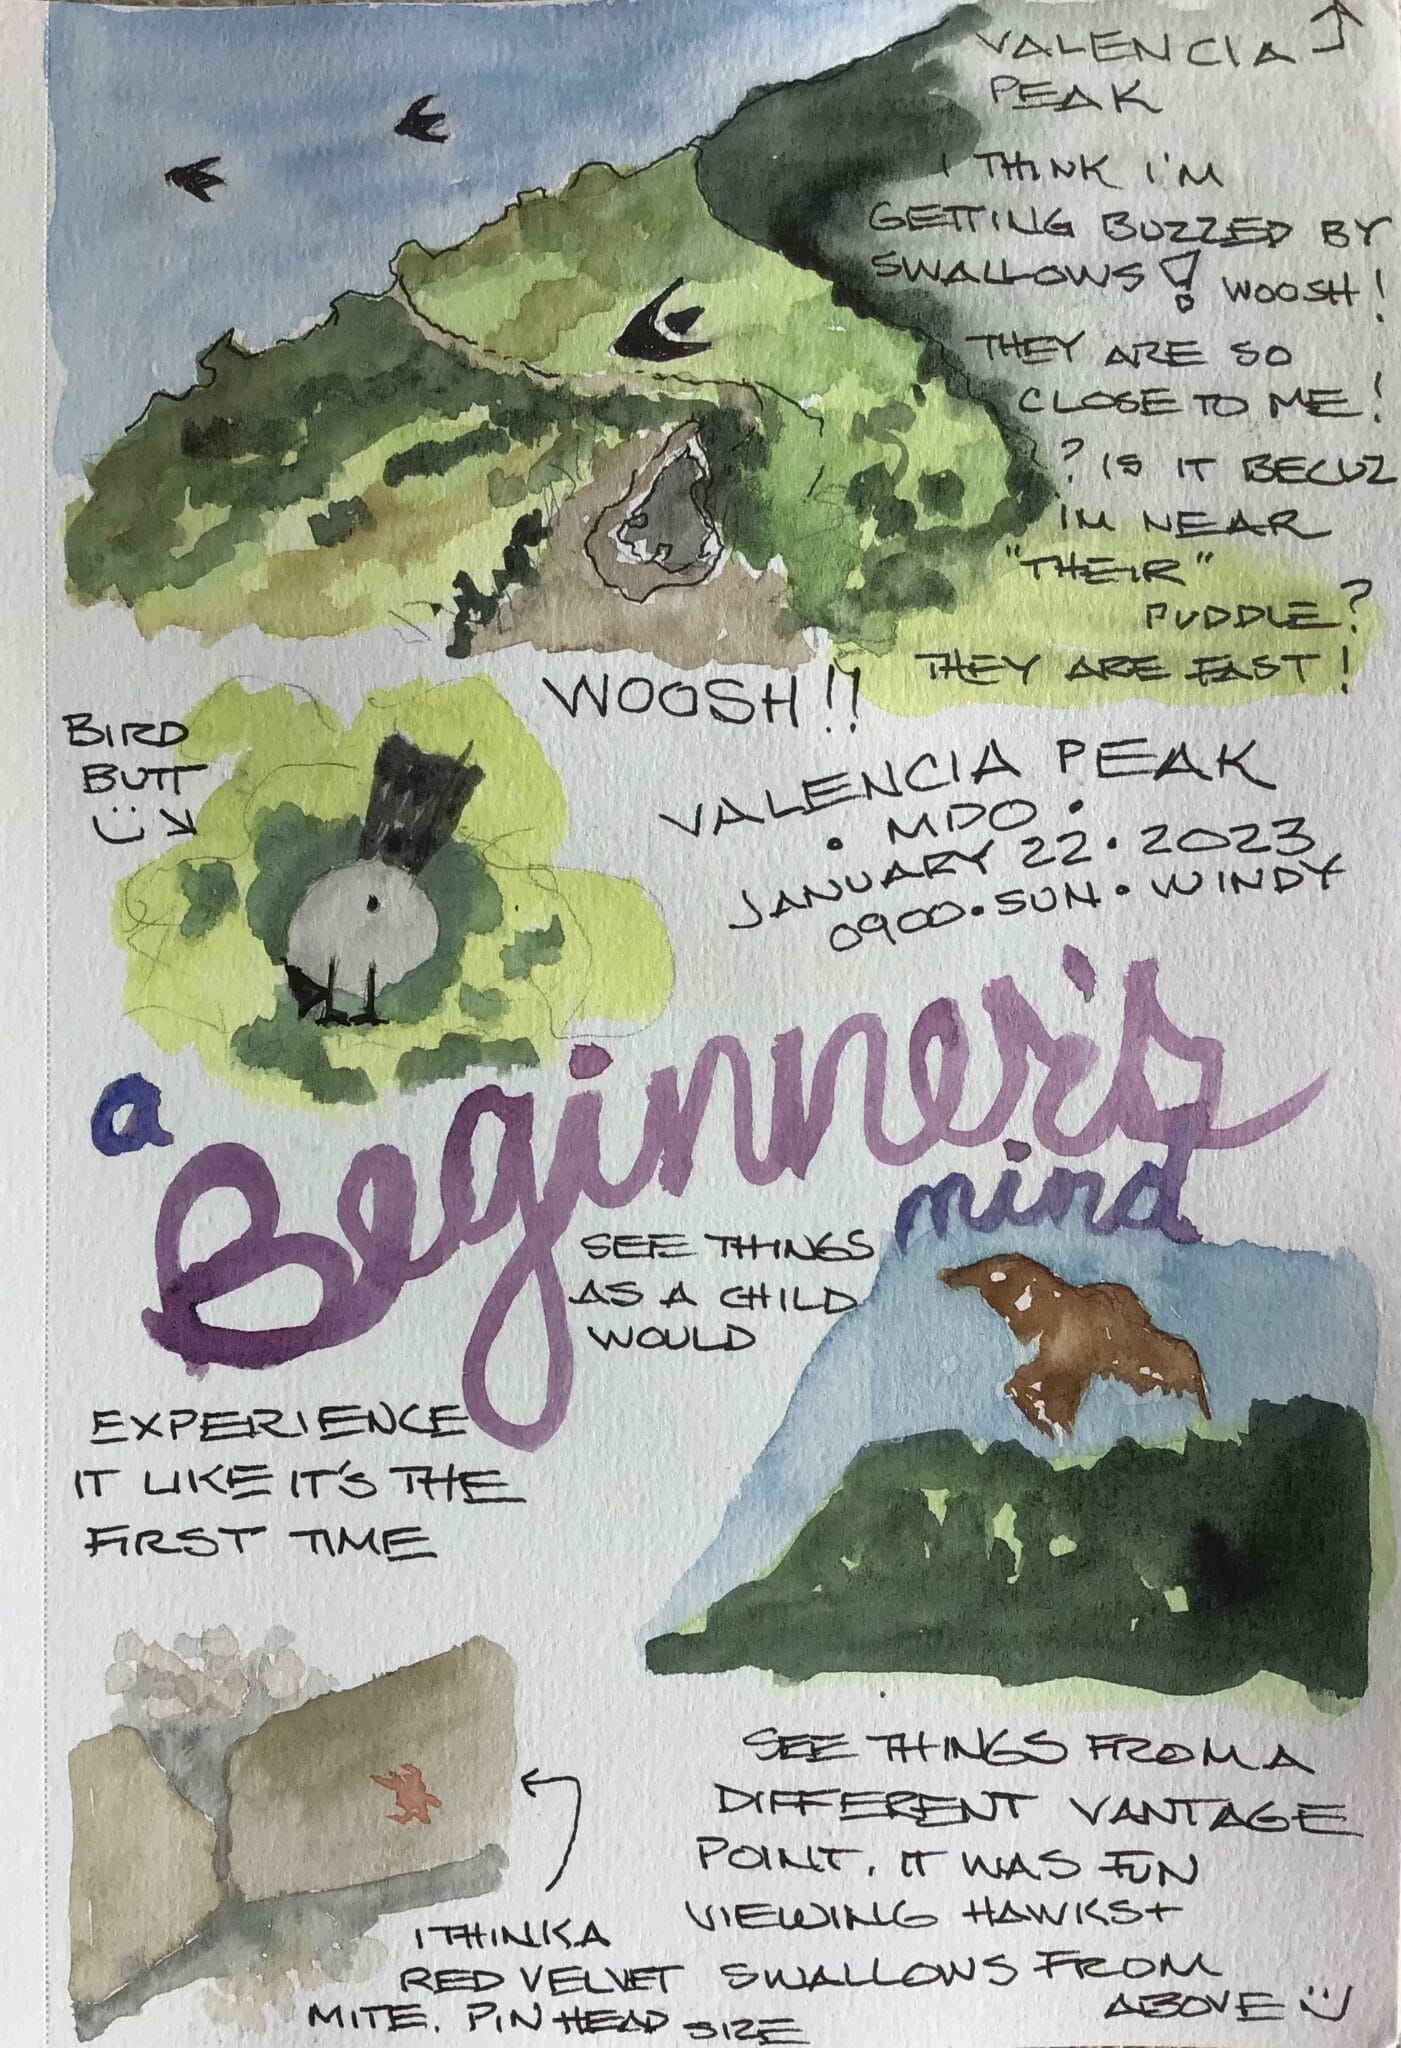 VALENCIA
PEAK
I THINK I'M
GETTING BUZZED BY
SWALLOWS! WOOSH!
THEY ARE SO
CLOSE TO ME!
? IS IT BECUZ
IM NEAR
"THEIR"
PUDDLE?
THEY ARE FAST!
WOOSH!!
BIRD
BUTT
VALENCIA PEAK
• MDO •
JANUARY 22 • 2023
0900 • SUN • WINDY
a Beginner's
mind
SEE THINGS
AS A CHILD
WOULD
EXPERIENCE
IT LIKE IT'S THE
FIRST TIME
I THINK A
RED VELVET
MITE. PIN HEAD SIZE
SEE THINGS FROM A
DIFFERENT VANTAGE
POINT. IT WAS FUN
VIEWING HAWKS +
SWALLOWS FROM
ABOVE